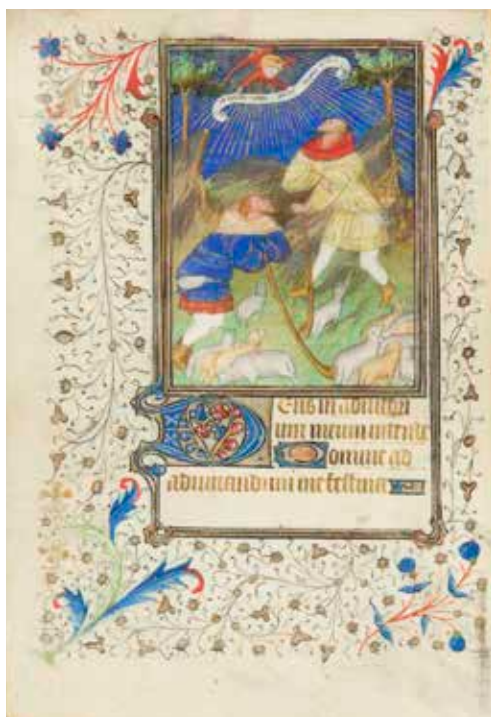 Deus in adiutori
um meum intende
Domine ad
adiuuandum me festina